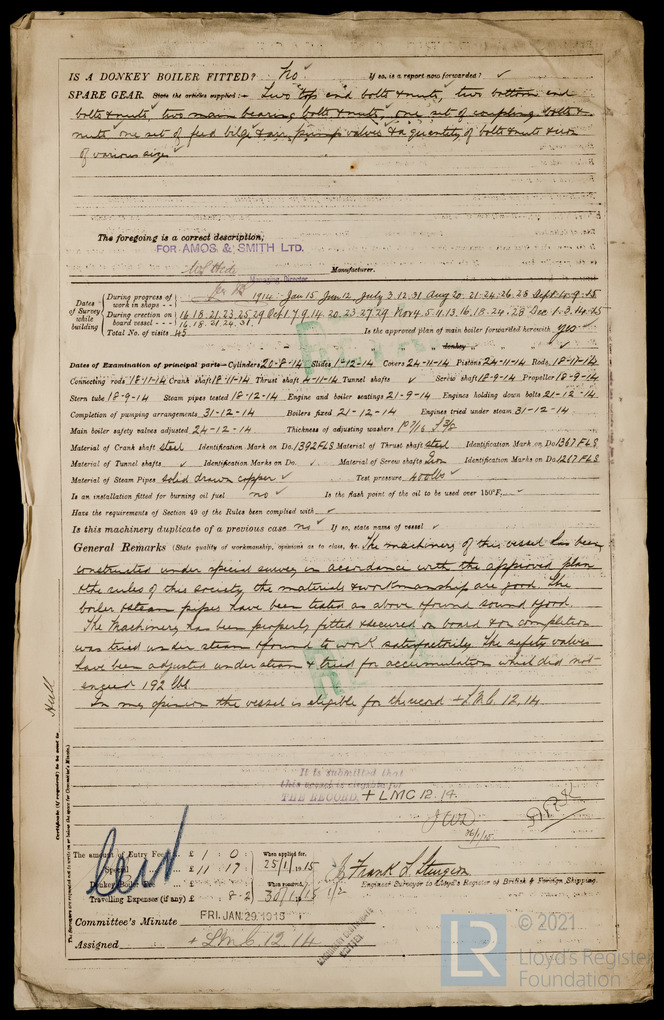 IS A DONKEY BOILER FITTED? No If so, is a report now forwarded? ✓
SPARE GEAR. State the articles supplied:— Two top end bolts & nuts, two bottom end
bolts & nuts, two main bearing bolts & nuts, one set of coupling bolts &
nuts one set of feed bilge & air pump valves & a quantity of bolts & nuts & iron
of various sizes
The foregoing is a correct description,
FOR AMOS & SMITH LTD.
Managing Director. Manufacturer.
Dates of Survey while building
During progress of work in shops - - 1914 Jan 15 Jun 12 July 3. 12. 31 Aug 20. 21. 24. 26. 28 Sept 4. 9. 15
During erection on board vessel - - - 16. 18. 21. 23. 25. 29 Oct 1. 7. 9. 14. 20. 23. 27. 29 Nov 4. 5. 11. 13. 16. 18. 24. 28 Dec 1. 3. 14. 15
16. 18. 21. 24. 31.
Total No. of visits 45 Is the approved plan of main boiler forwarded herewith yes
" " " donkey " " " ✓
Dates of Examination of principal parts—Cylinders 20-8-14 Slides 1-12-14 Covers 24-11-14 Pistons 24-11-14 Rods 18-11-14
Connecting rods 18-11-14 Crank shaft 18-11-14 Thrust shaft 4-11-14 Tunnel shafts ✓ Screw shaft 18-9-14 Propeller 18-9-14
Stern tube 18-9-14 Steam pipes tested 18-12-14 Engine and boiler seatings 21-9-14 Engines holding down bolts 21-12-14
Completion of pumping arrangements 31-12-14 Boilers fixed 21-12-14 Engines tried under steam 31-12-14
Main boiler safety valves adjusted 24-12-14 Thickness of adjusting washers
Material of Crank shaft steel Identification Mark on Do. 1392 FLS Material of Thrust shaft steel Identification Mark on Do. 1367 FLS
Material of Tunnel shafts ✓ Identification Marks on Do. ✓ Material of Screw shafts Iron Identification Marks on Do. 1267 FLS
Material of Steam Pipes solid drawn copper ✓ Test pressure 400 lbs ✓
Is an installation fitted for burning oil fuel no ✓ Is the flash point of the oil to be used over 150°F. ✓
Have the requirements of Section 49 of the Rules been complied with ✓
Is this machinery duplicate of a previous case no ✓ If so, state name of vessel ✓
General Remarks (State quality of workmanship, opinions as to class, &c. The machinery of this vessel has been
constructed under special survey in accordance with the approved plan
& the rules of this society the materials & workmanship are good. The
boiler & steam pipes have been tested as above & found sound & good.
The Machinery has been properly fitted & secured on board & on completion
was tried under steam & found to work satisfactorily. The safety valves
have been adjusted under steam & tried for accumulation which did not
exceed 192 lbs.
In my opinion the vessel is eligible for the record + LMC. 12, 14.
Hull
It is submitted that
this vessel is eligible for
THE RECORD. + LMC 12. 14.
26/1/15
The amount of Entry Fee .. £ 1 : 0 : When applied for,
Special .. £ 11 : 17 : 25/1/1915
Donkey Boiler Fee .. £ : : When received,
Travelling Expenses (if any) £ : 8. 2 30/1/1915
Frank L Sturgeon
Engineer Surveyor to Lloyd's Register of British & Foreign Shipping.
Committee's Minute FRI. JAN. 29. 1915
Assigned + LMC. 12. 14
© 2021
LR Lloyd's Register
Foundation